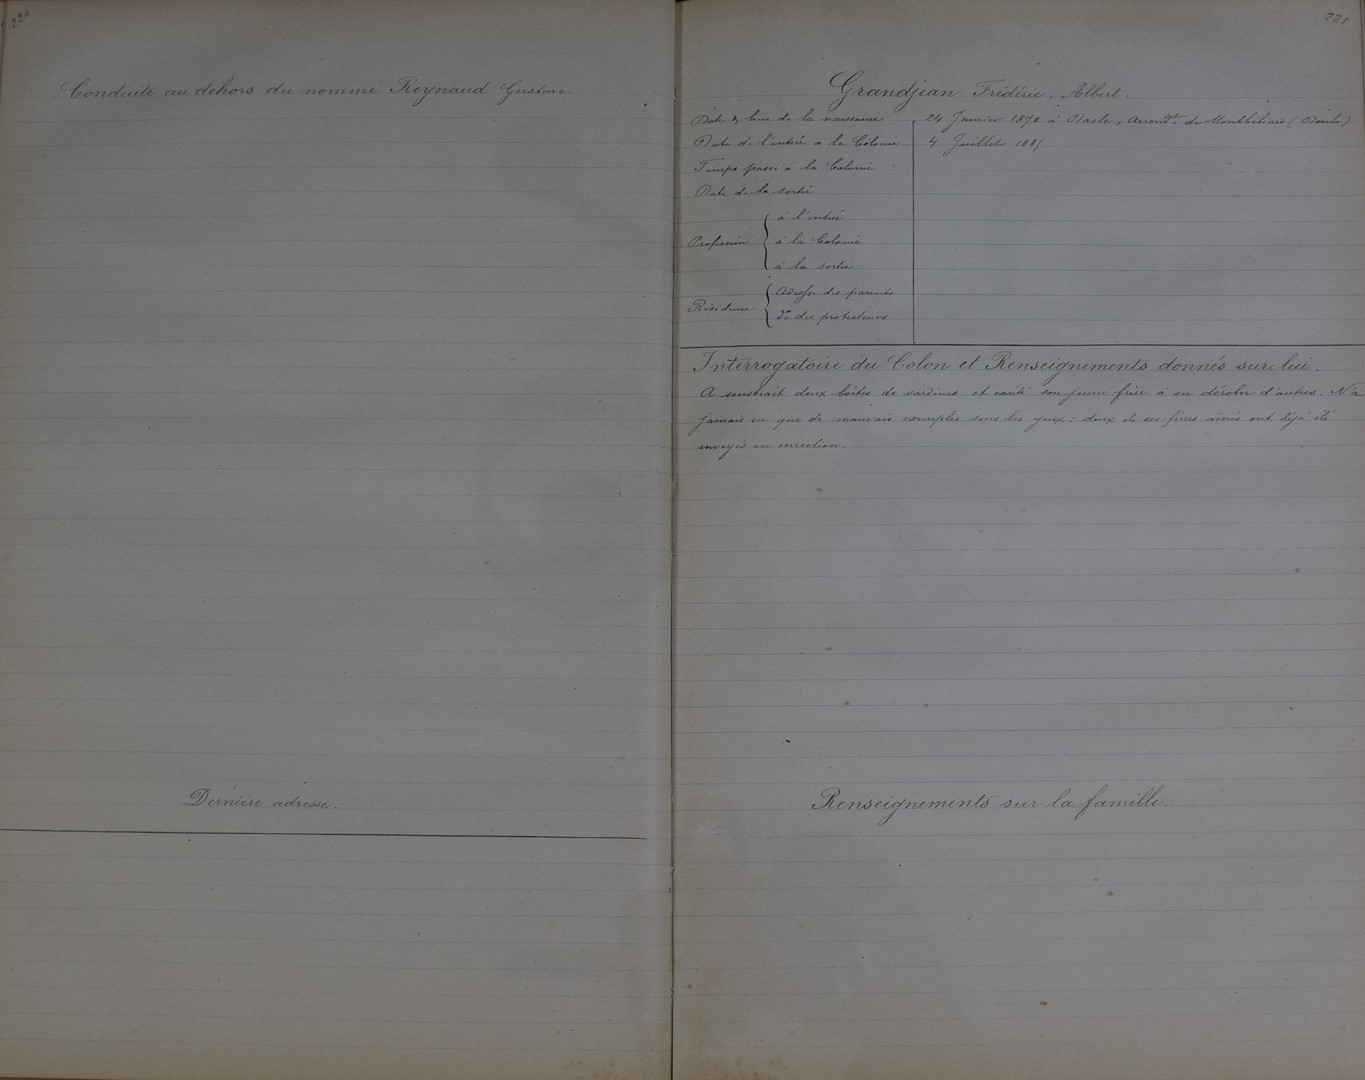 220
Conduite au dehors du nommé Reynaud Gustave.
Dernière adresse.
221
Grandjean Frédéric, Albert.
Date & lieu de la naissance 24 Janvier 1870 à Dasle, Arrondt de Montbéliard (Doubs)
Date de l'entrée à la Colonie 4 Juillet 1885
Temps passé à la Colonie
Date de la sortie
Profession
à l'entrée
à la Colonie
à la sortie
Résidence
Adresse des parents
do des protecteurs
Interrogatoire du Colon et Renseignements donnés sur lui.
A soustrait deux boîtes de sardines et excité son jeune frère à en dérober d'autres. N'a
jamais eu que de mauvais exemples sous les yeux : deux de ses frères aînés ont déjà été
envoyés en correction.
Renseignements sur la famille.